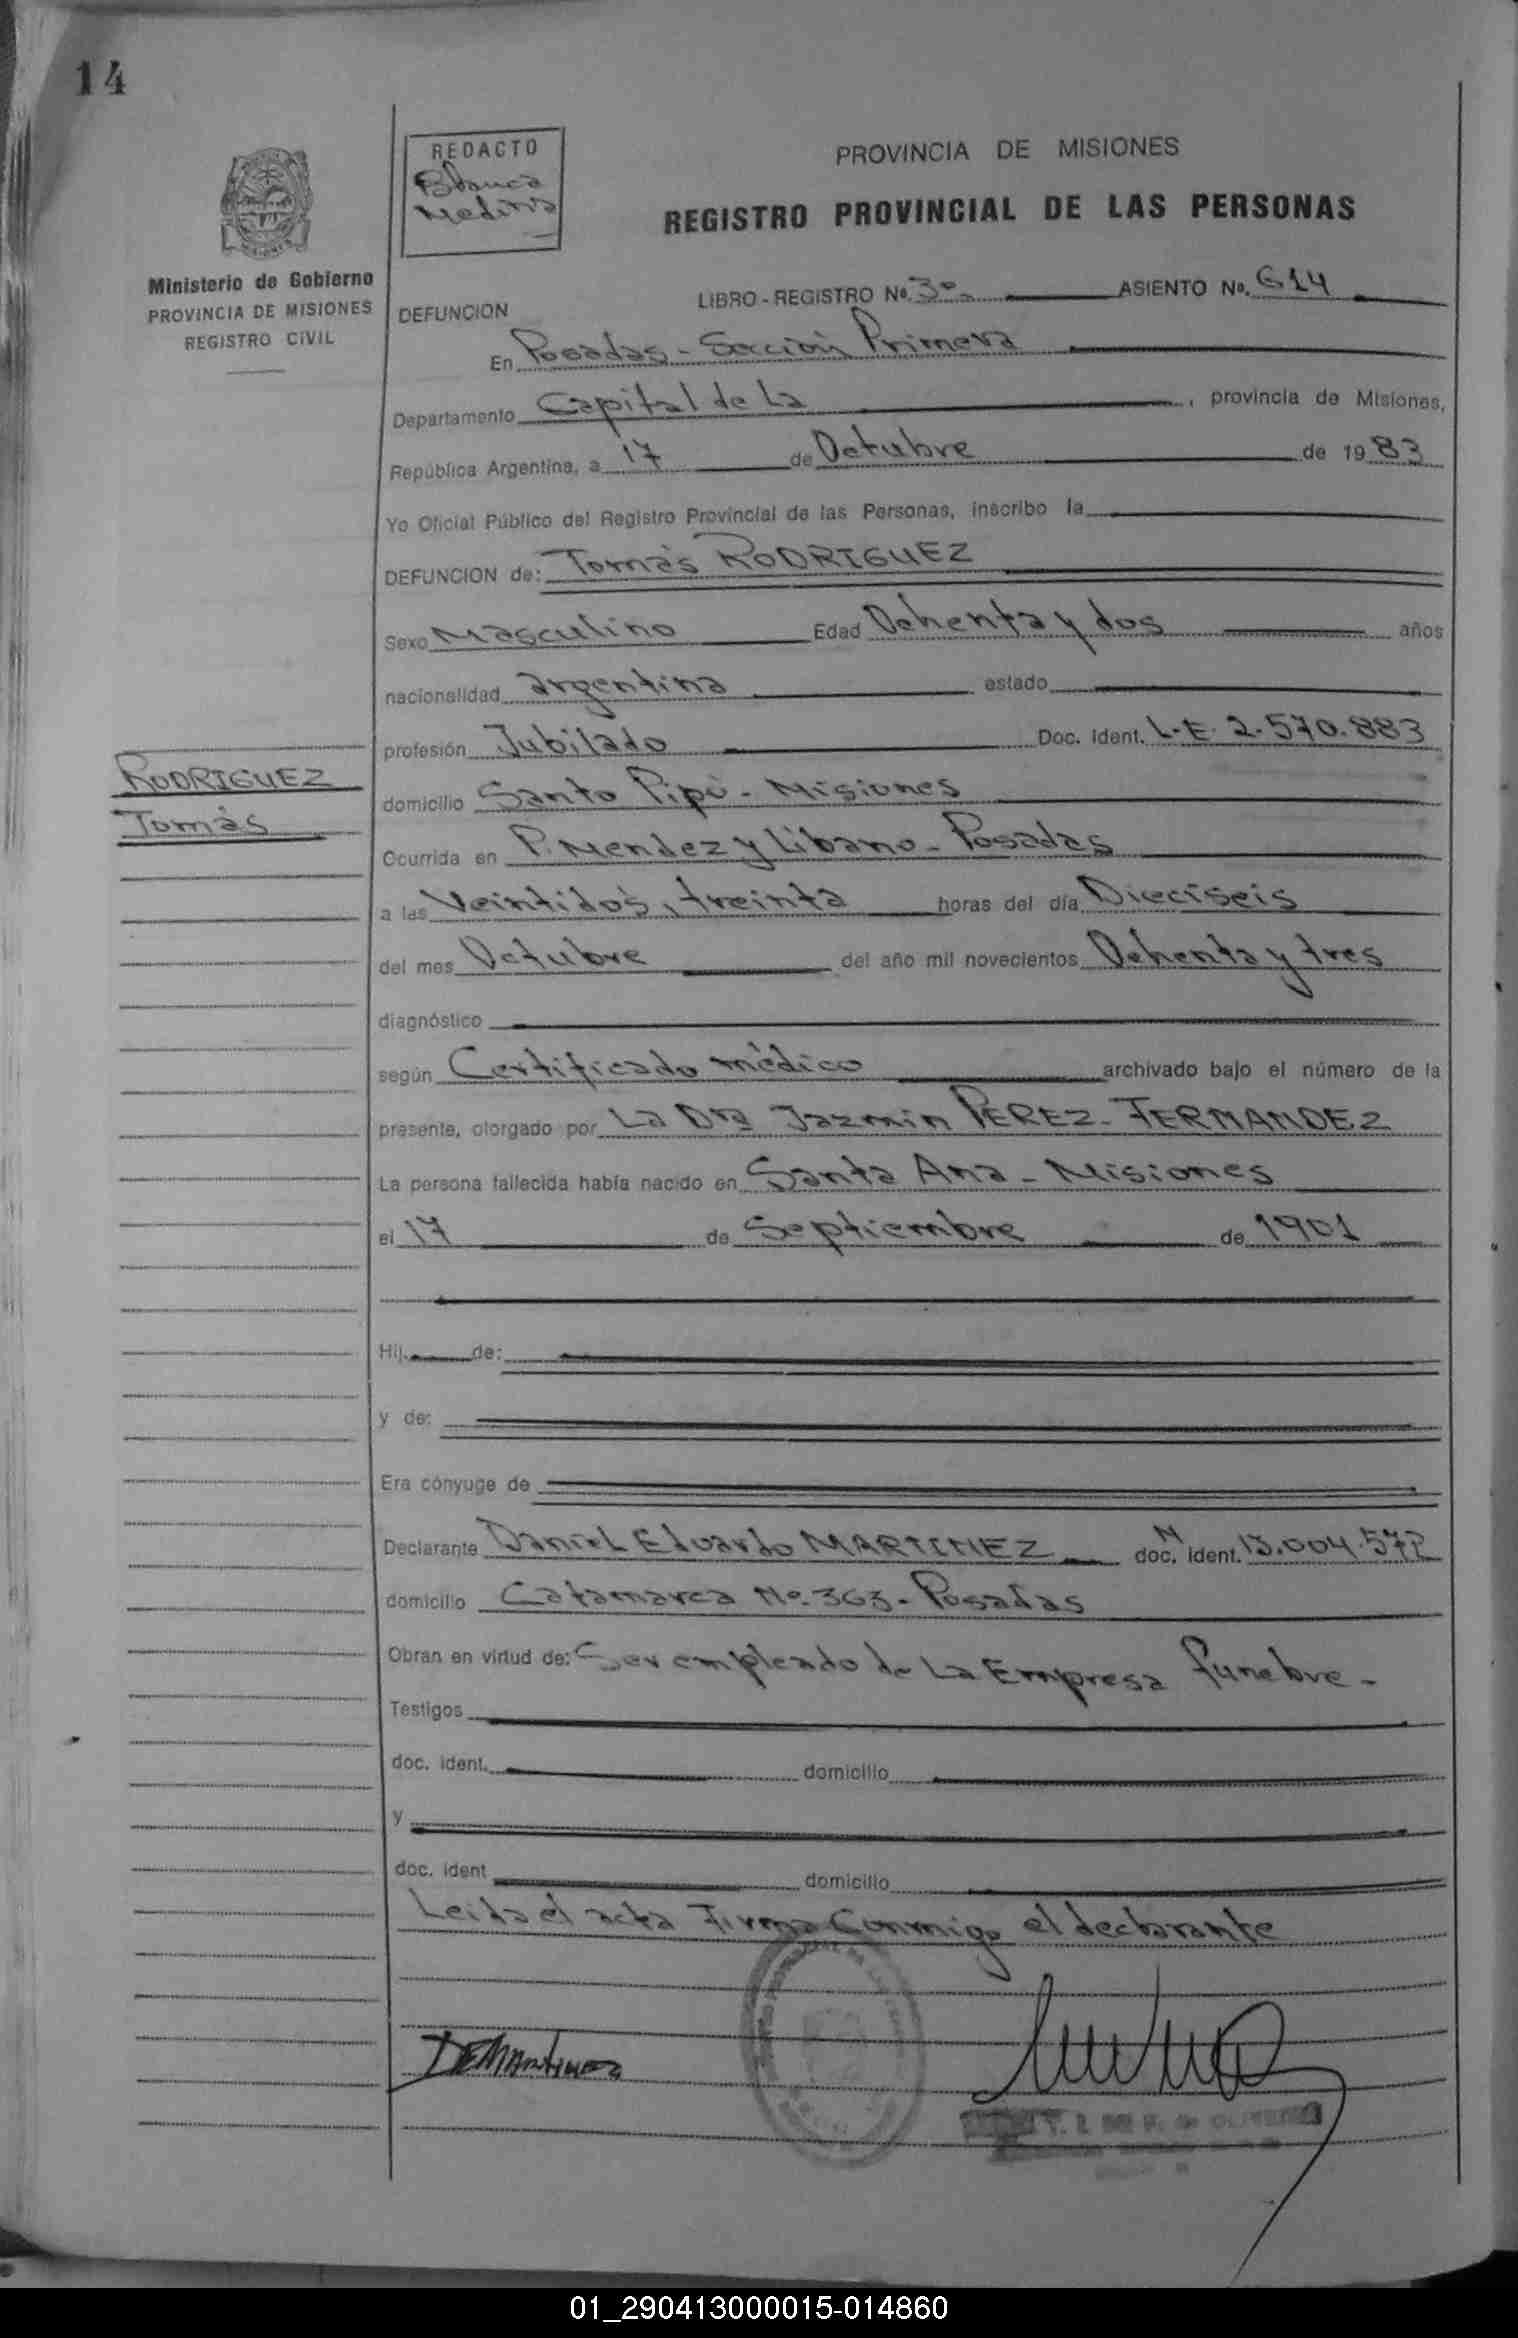 14
REDACTO
Blanca
Medina
PROVINCIA DE MISIONES
REGISTRO PROVINCIAL DE LAS PERSONAS
Ministerio de Gobierno
PROVINCIA DE MISIONES
REGISTRO CIVIL
DEFUNCION LIBRO - REGISTRO Nº 3º ASIENTO Nº. 614
En Posadas - Sección Primera
Departamento Capital de La , provincia de Misiones,
República Argentina, a 17 de Octubre de 1983
Yo Oficial Público del Registro Provincial de las Personas, inscribo la
DEFUNCION de: Tomás RODRIGUEZ
Sexo Masculino Edad Ochenta y dos años
nacionalidad argentina estado
profesión Jubilado Doc. Ident. L.E. 2.570.883
RODRIGUEZ
Tomás
domicilio Santo Pipó - Misiones
Ocurrida en P. Mendez y Libano - Posadas
a las Veintidós, treinta horas del día Dieciseis
del mes Octubre del año mil novecientos Ochenta y tres
diagnóstico
según Certificado médico archivado bajo el número de la
presente, otorgado por La Dra Jazmin PEREZ - FERNANDEZ
La persona fallecida había nacido en Santa Ana - Misiones
el 17 de Septiembre de 1901
Hij de:
y de:
Era cónyuge de
Declarante Daniel Eduardo MARTINEZ doc. N ident. 13.004.572
domicilio Catamarca Nº 363 - Posadas
Obran en virtud de: Ser empleado de La Empresa funebre -
Testigos
doc. ident. domicilio
y
doc. ident domicilio
Leida el acta Firma Conmigo el declarante
DEMartinez
01_290413000015-014860